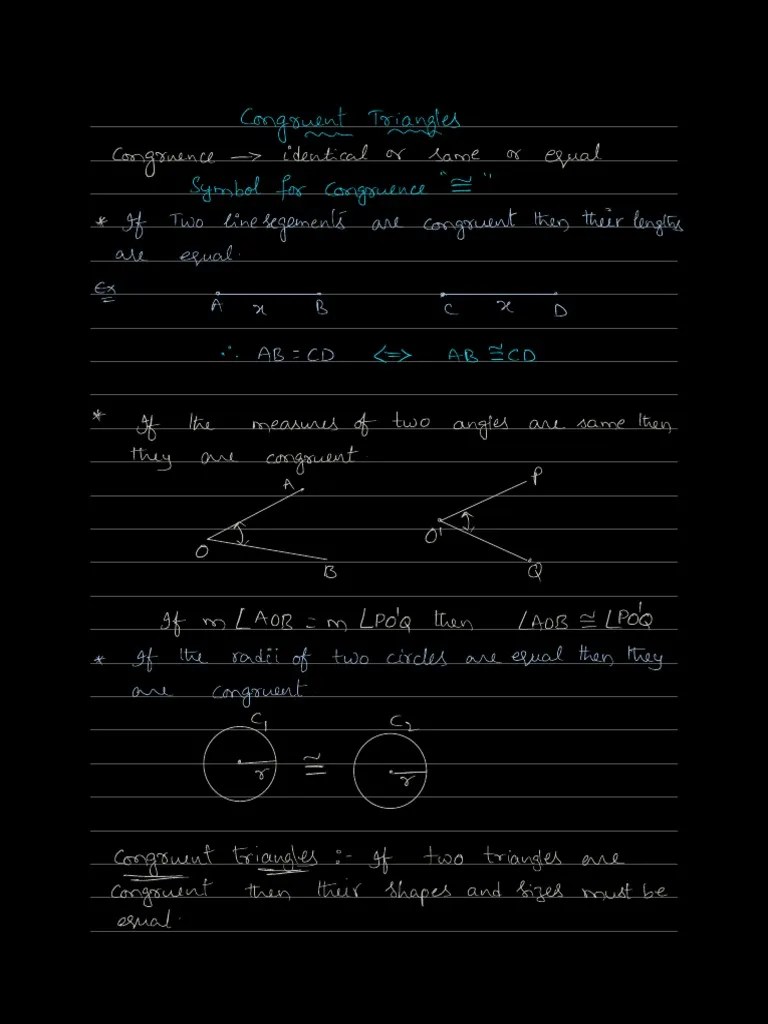 Congruent Triangles
Congruence → identical or same or equal
Symbol for congruence "≅"
* If Two linesegements are congruent then their lengths
are equal.
Ex
A x B C x D
∴ AB = CD <=> AB ≅ CD
* If the measures of two angles are same then
they are congruent.
A P
O O'
B Q
If m ∠AOB = m ∠PO'Q then ∠AOB ≅ ∠PO'Q
* If the radii of two circles are equal then they
are congruent
C₁ C₂
r ≅ r
Congruent triangles :- If two triangles are
congruent then their shapes and sizes must be
equal.